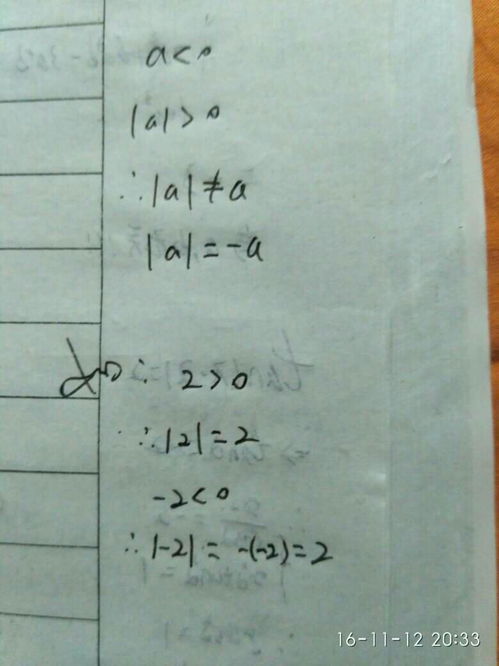 a<0
|a|>0
∴|a|≠a
|a|=-a
∵ 2>0
∴|2|=2
-2<0
∴|-2|=-(-2)=2
16-11-12 20:33